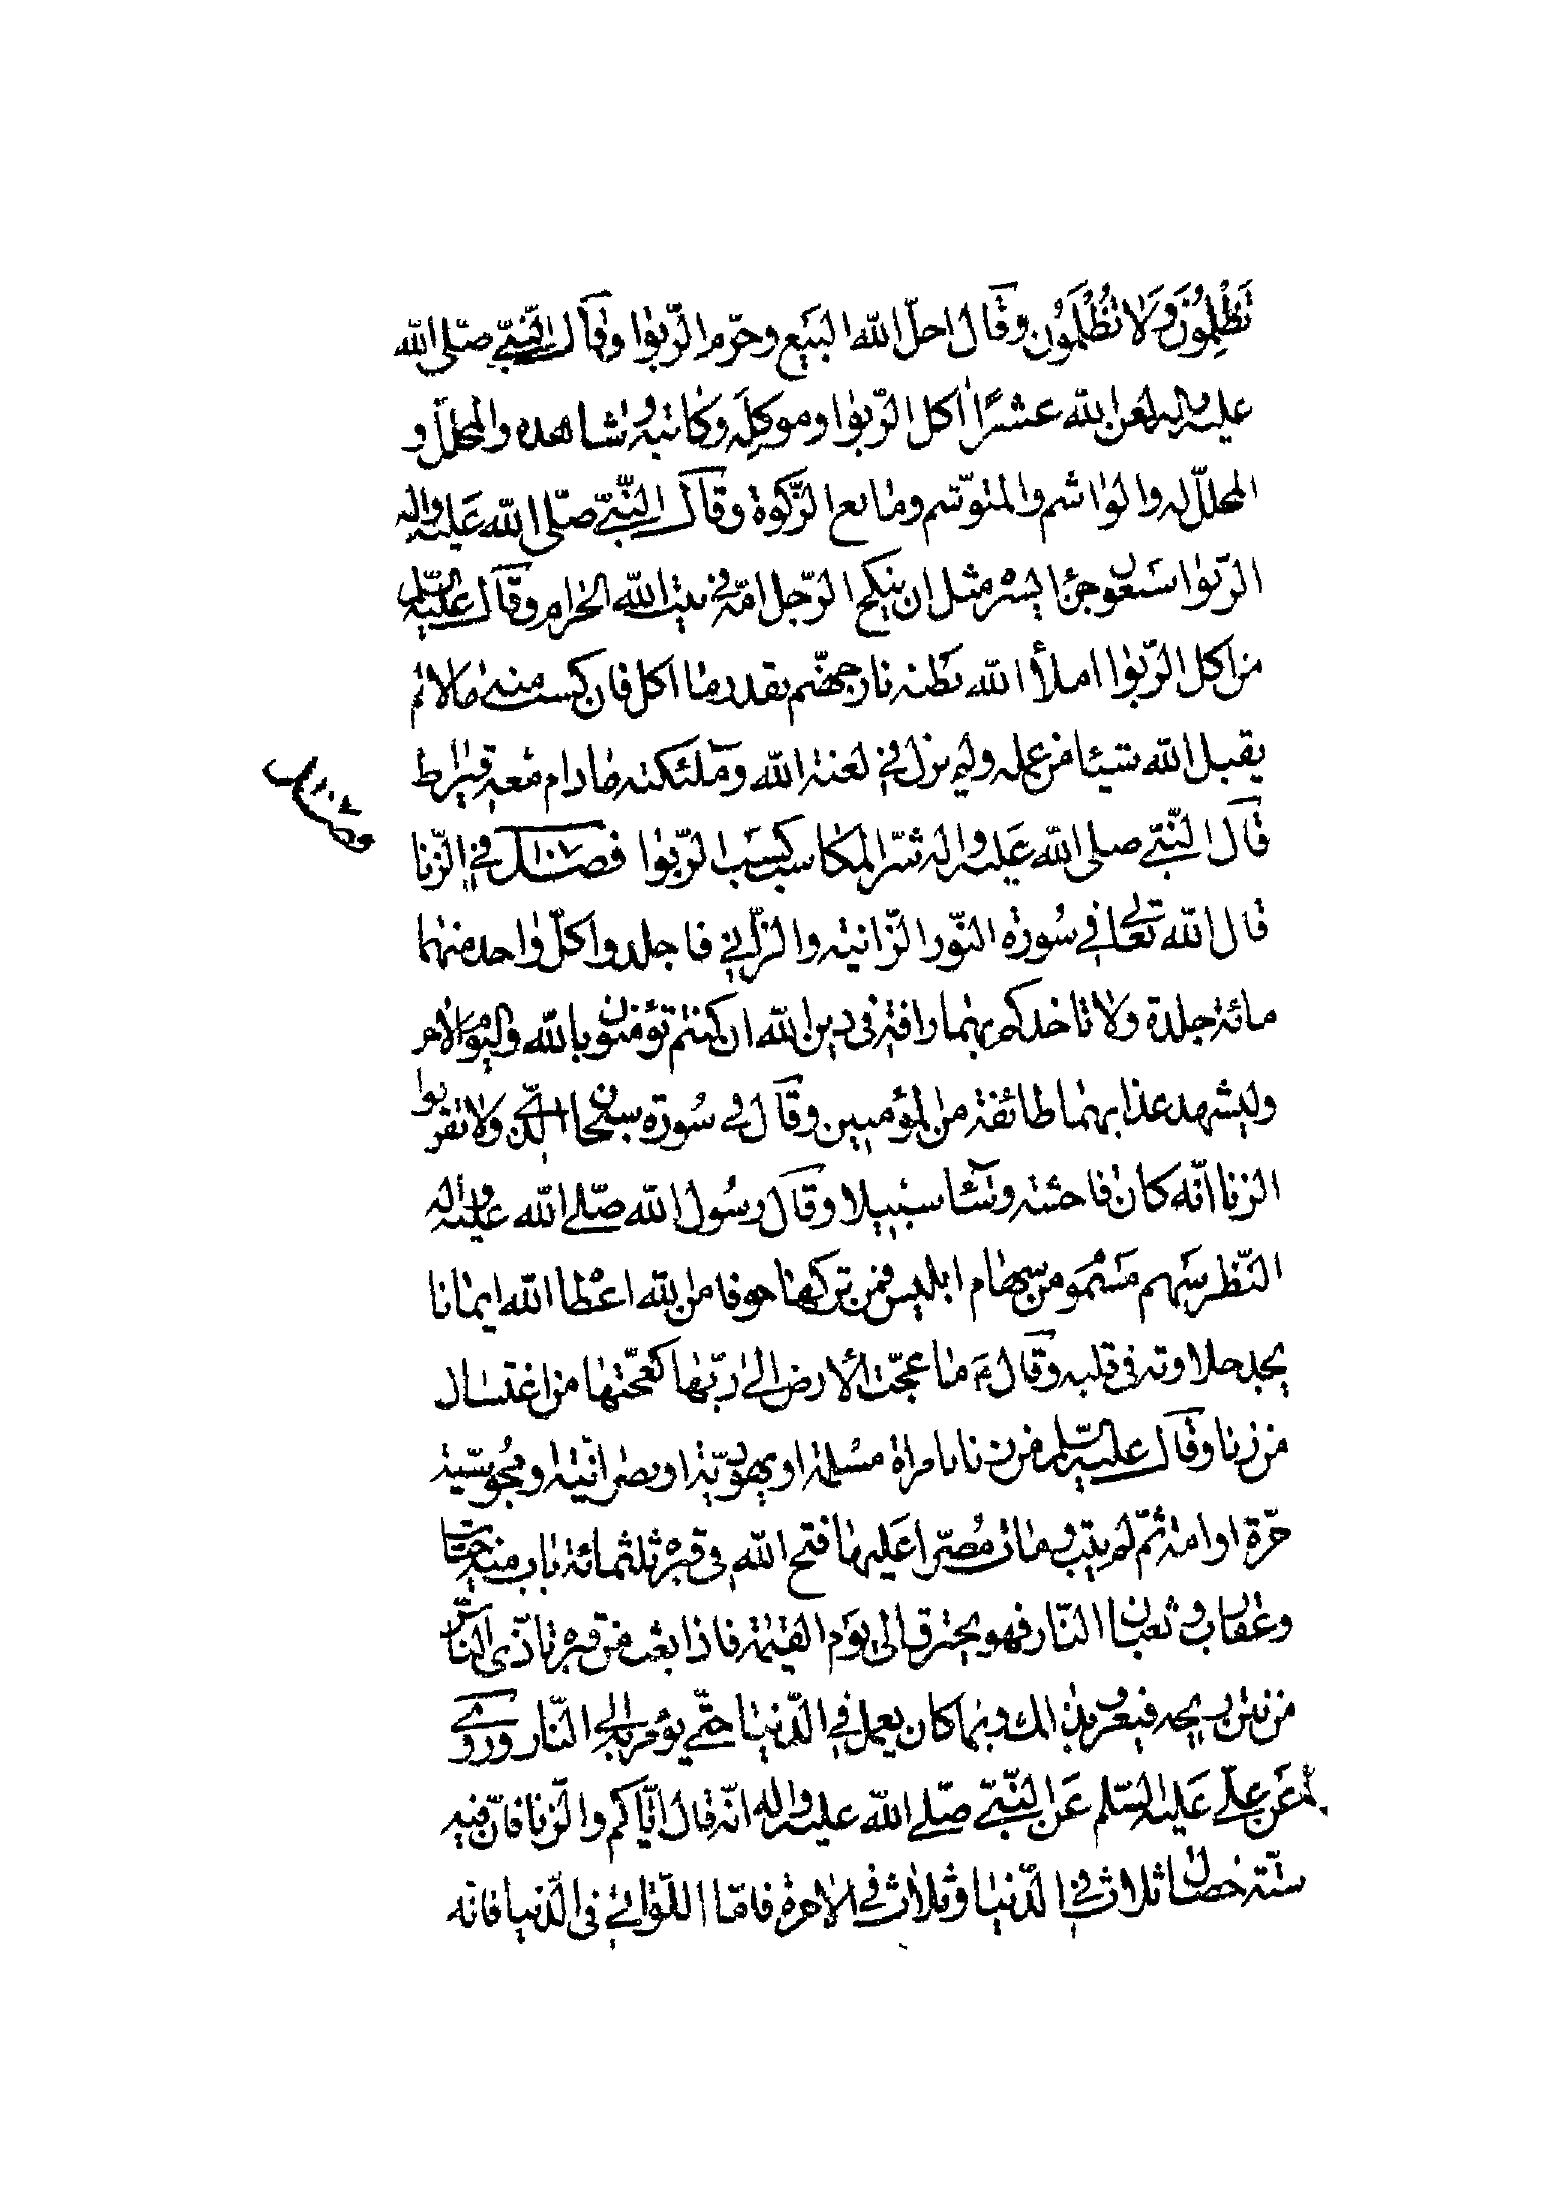 تَظْلِمُونَ وَلَا تُظْلَمُون وقال احلّ الله البَيَع وحرّم الرّبٰوا وقال النّبىّ صلّى الله
عليه واله لعن الله عشرًا اكل الرّبوا وموكِله وكاتبه وشاهده والمحلّل و
المحلّل له والواشم والمتوشّم ومانع الزّكوة وقال النّبىّ صلّى الله عَليه واله
الرّبوا سَبعون جزًا ايسره مثل ان ينكح الرّجل امّه فى بيت الله الحرام وقال عليه السّلم
من اكل الرّبوا املأ الله بَطنه نار جهنّم بقدر ما اكل فان كسب منه مالا لم
يقبل الله شيئا من عمله ولم يزل فى لعنة الله وملئكته ما دام معه قيراط
قال النّبىّ صلى الله عَليه واله شرّ المكاسب كسَب الرّبوا فصــل فى الزنا
قال الله تعالى فى سُورة النوّر الزّانية والزّانى فاجلدوا كلّ واحد منهما
مائة جلدة ولا تاخدكم بهما رافة فى دين الله ان كنتم تؤمنون بالله واليوم الاخر
وليشهد عذابهما طائفة من المؤمنين وقال فى سُورة سبحان الّذى ولا تقربوا
الزنا انّه كان فاحشة وسَآء سبيلا وقال رسُول الله صلّى الله عليه واله
النّظر سَهم مَسْمُوم من سهام ابليس فمن تركها خوفا من الله اعْطا الله ايمانا
يجد حلاوته فى قلبه وقال ع ما عجّت الأرض الى ربّها كعجّتها من اغتسال
من زنا وقال عليه السّلم من زنا بامراة مسُلمة او يهوديّة او نصرانيّة او مجُوسّية
حرّة او امة ثمّ لم يتب ومات مُصّرا عَليها فتح الله فى قبره ثلثمائة باب منه حيّات
وعقارب وثعبان النّار فهو يحترق الى يَوم القيمة فاذا بعث من قبره تاذّى النّاس
من نتن ريحه فيعرف بذلك وبما كان يعمل فى الدّنيا حتّى يؤمر به الى النّار وروى
عَن علىّ عَليه السّلم عَن النّبىّ صلّى الله عليه واله انّه قال ايّاكم والزنا فانّ فيه
ستّة خصال ثلاث فى الدّنيا وثلاث فى الاخرة فامّا اللّواتى فى الدّنيا فانّه